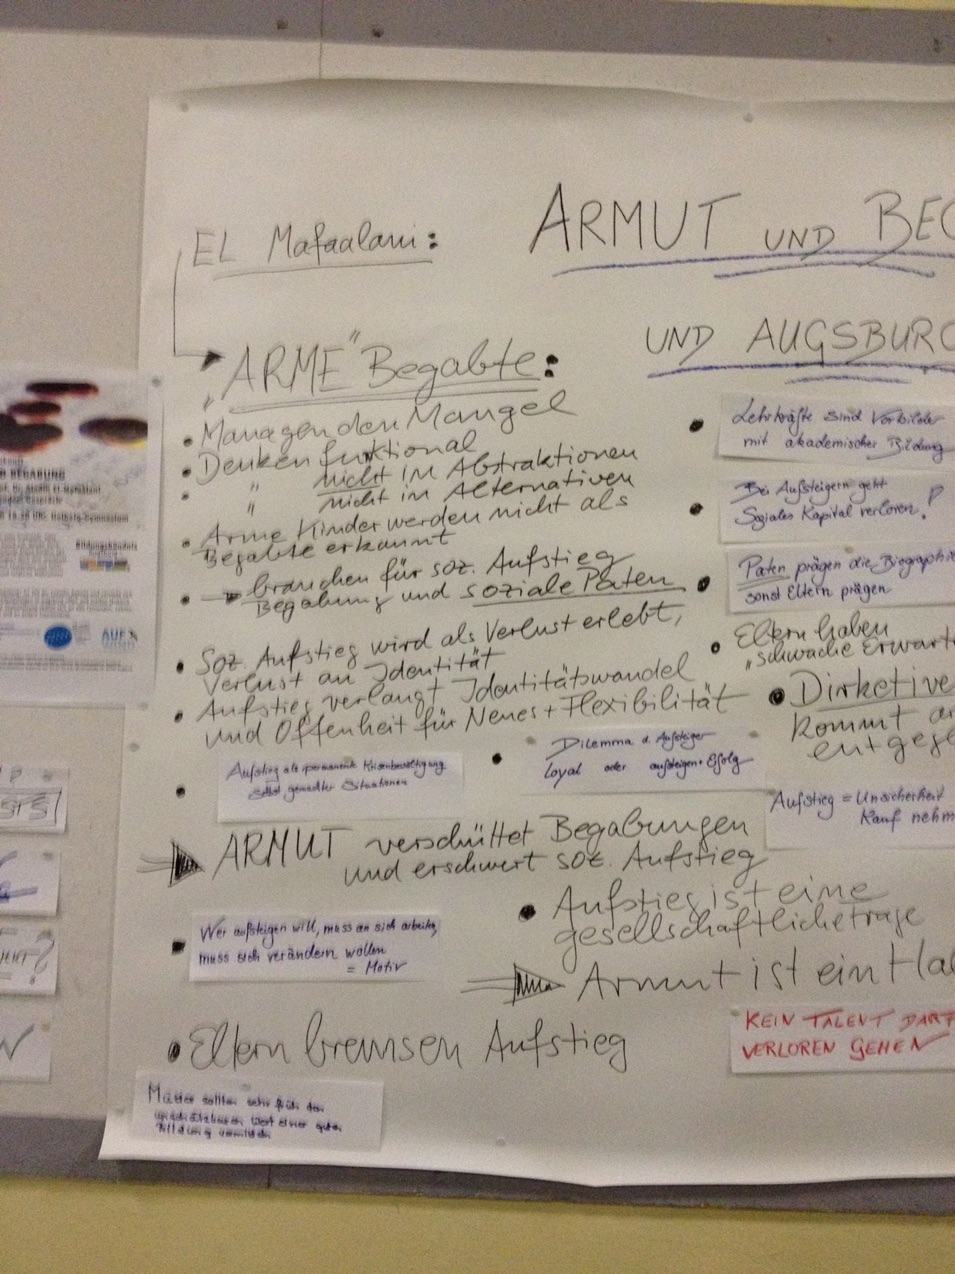 EL Mafaalani:
ARMUT UND BEG
UND AUGSBURG
„ARME" Begabte:
• Managen den Mangel
• Denken funktional
• " nicht in Abstraktionen
" nicht in Alternativen
• Arme Kinder werden nicht als
Begabte erkannt
• → brauchen für soz. Aufstieg
Begabung und soziale Paten
• Soz. Aufstieg wird als Verlust erlebt,
Verlust an Identität
• Aufstieg verlangt Identitätswandel
und Offenheit für Neues + Flexibilität
• Aufstieg als permanente Krisenbewältigung
selbst gemachter Situationen
• Dilemma d. Aufsteiger
loyal oder aufsteigen + Erfolg
ARMUT verschüttet Begabungen
und erschwert soz. Aufstieg
• Wer aufsteigen will, muss an sich arbeiten,
muss sich verändern wollen
= Motiv
• Aufstieg ist eine
gesellschaftliche Frage
Armut ist ein
• Eltern bremsen Aufstieg
KEIN TALENT DARF
VERLOREN GEHEN
Mütter sollten sehr früh den
Wert einer guten
Bildung vermitteln
• Lehrkräfte sind Vorbilder
mit akademischer Bildung
• Bei Aufsteigern geht
Soziales Kapital verloren!?
• Paten prägen die Biographie
sonst Eltern prägen
• Eltern haben
„schwache Erwart
• Direktive
kommt
entgege
Aufstieg = Unsicherheit
Kauf nehm
BEGABUNG